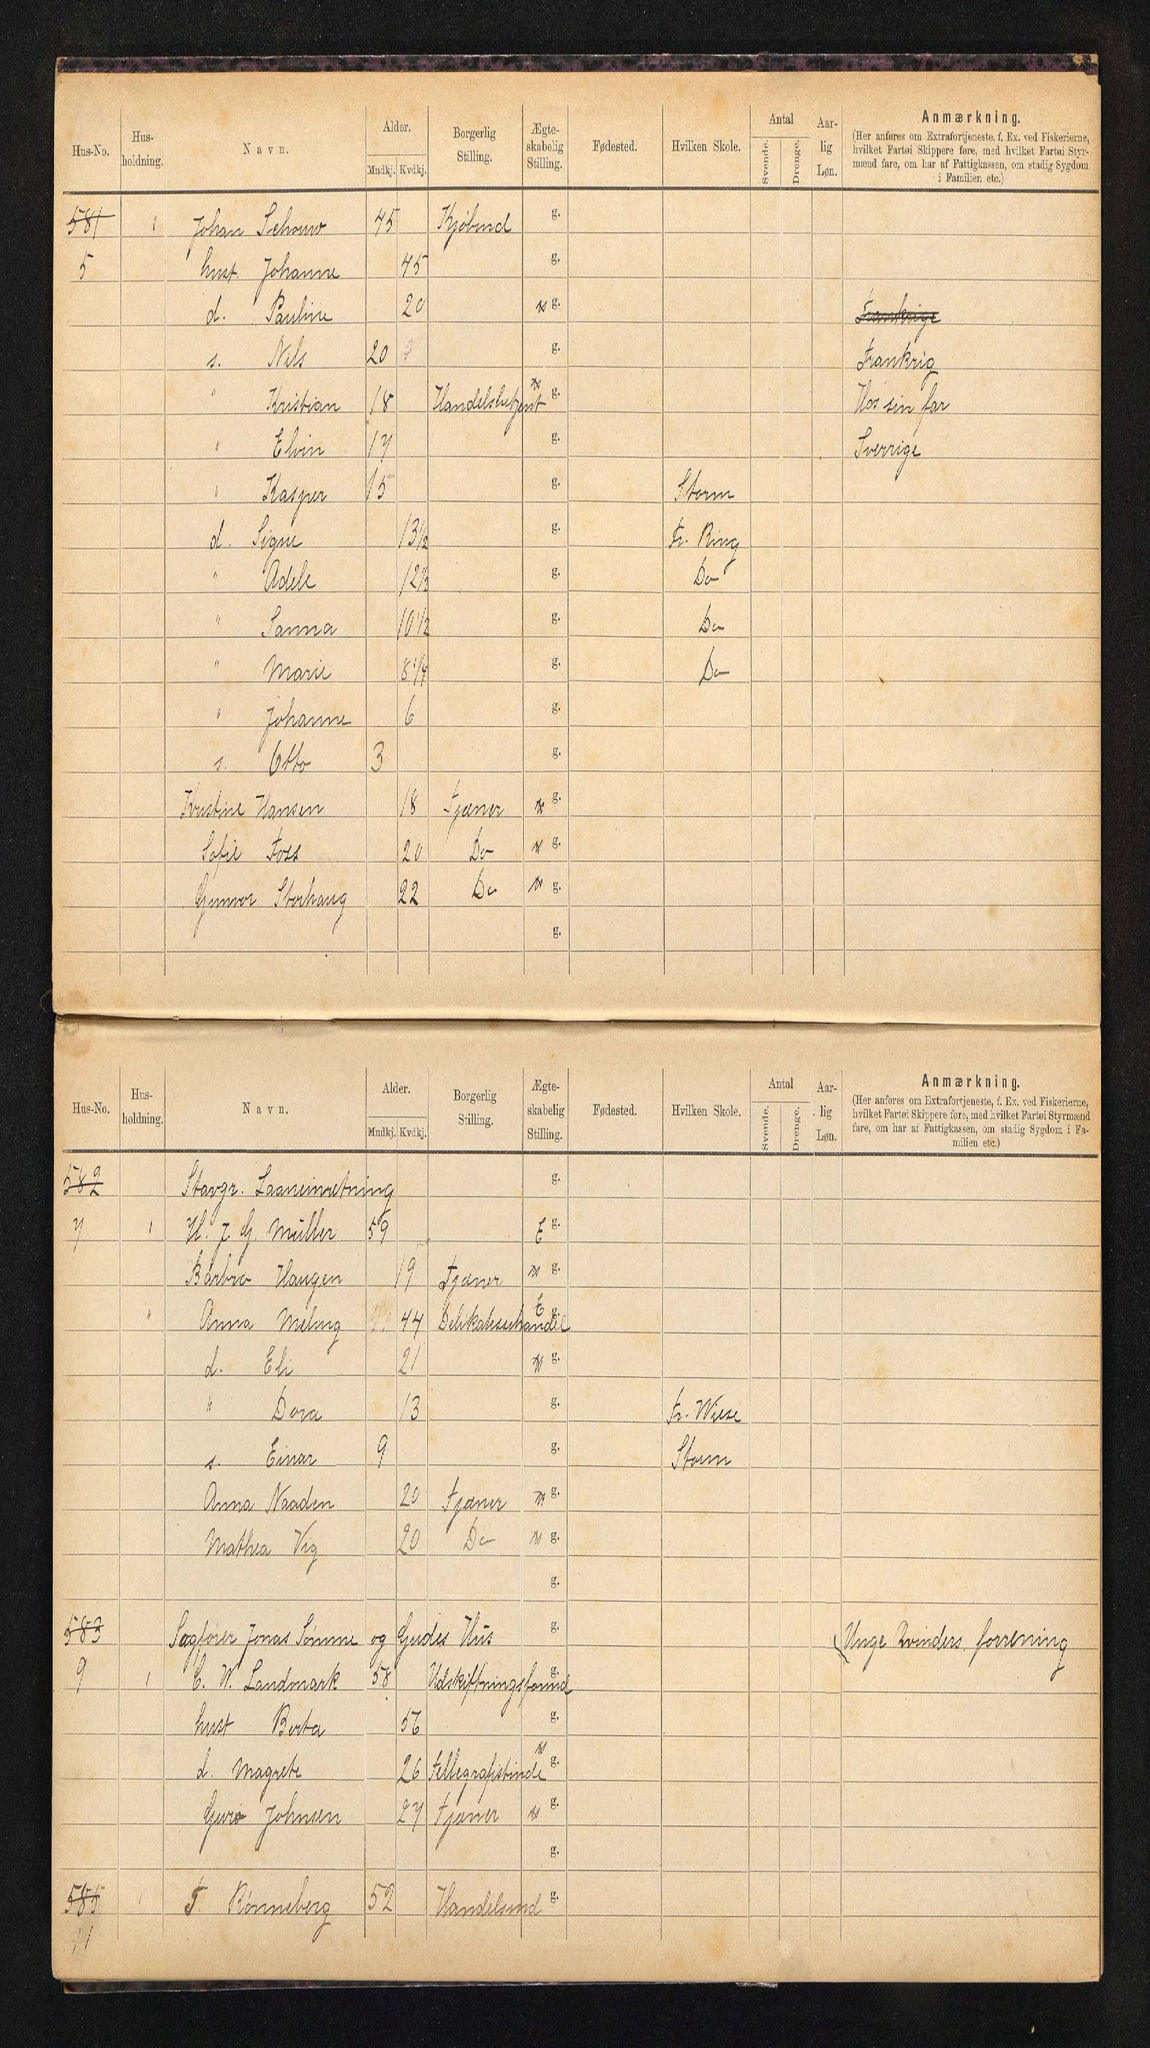 Hus-No. Hus-holdning. Navn. Alder. Mndkj. Kvdkj. Borgerlig Stilling. Ægte-skabelig Stilling. Fødested. Hvilken Skole. Antal Svende. Drenge. Aar-lig Løn. Anmærkning.
(Her anføres om Extrafortjeneste, f. Ex. ved Fiskerierne,
hvilket Fartøi Skippere føre, med hvilket Fartøi Styr-
mænd fare, om har af Fattigkassen, om stadig Sygdom
i Familien etc.)
581 1 Johan Schouw 45 Kjøbmd g.
5 hust. Johanne 45 g.
d. Pauline 20 u g. Frankrige
s. Nils 20 g. Frankrig
" Kristian 18 Handelsbetjent u g. Hos sin far
" Elvin 17 g. Sverrige
" Kasper 15 g. Storm
d. Signe 13 1/2 g. Fr. Ring
" Adele 12 1/2 g. Do
" Sanna 10 1/2 g. Do
" Marie 8 1/4 g. Do
" Johanne 6 g.
s. Otto 3 g.
Kristine Hansen 18 Tjæner u g.
Sofie Foss 20 Do u g.
Gunvor Storhaug 22 Do u g.
g.
Hus-No. Hus-holdning. Navn. Alder. Mndkj. Kvdkj. Borgerlig Stilling. Ægte-skabelig Stilling. Fødested. Hvilken Skole. Antal Svende. Drenge. Aar-lig Løn. Anmærkning.
(Her anføres om Extrafortjeneste, f. Ex. ved Fiskerierne,
hvilket Fartøi Skippere føre, med hvilket Fartøi Styrmænd
fare, om har af Fattigkassen, om stadig Sygdom i Fa-
milien etc.)
582 Stavgr. Laaneinretning g.
7 1 H. J. G. Müller 59 E g.
Barbro Haugen 19 Tjæner u g.
" Anna Meling 44 Delikatessehandel E g.
d. Eli 21 u g.
" Dora 13 g. Fr. Wiese
s. Einar 9 g. Storm
Anna Naaden 20 Tjæner u g.
Mathea Vig 20 Do u g.
g.
583 Sagfører Jonas Sømme og Gjedes Hus g. Unge Kvinders forrening
9 1 C. W. Landmark 58 Udskiftningsformd g.
hust Berta 56 g.
d. Magrete 26 Tellegrafistinde u g.
Guro Johnsen 27 Tjæner u g.
g.
585 1 T. Rønneberg 52 Handelsmd g.
11